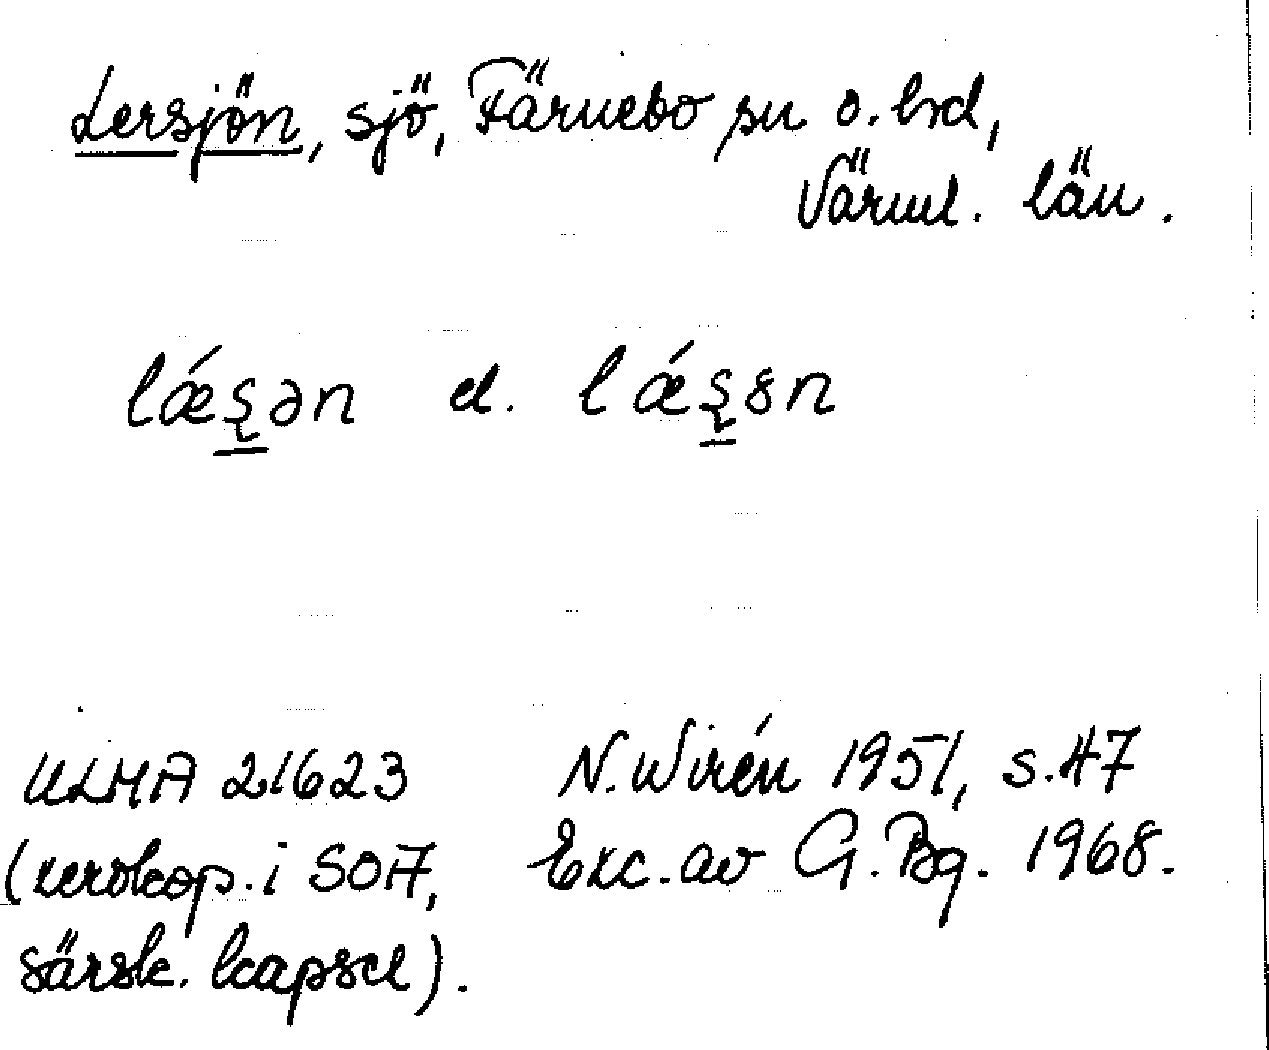 Lersjön, sjö, Färnebo sn o. hd,
Värml. län.
lǽʂ̲ən el. lǽʂ̲ȣn
ULMA 21623
(xerokop. i SOFI,
särsk. kapsel).
N. Wirén 1951, s. 47
Exc. av G. Bg. 1968.